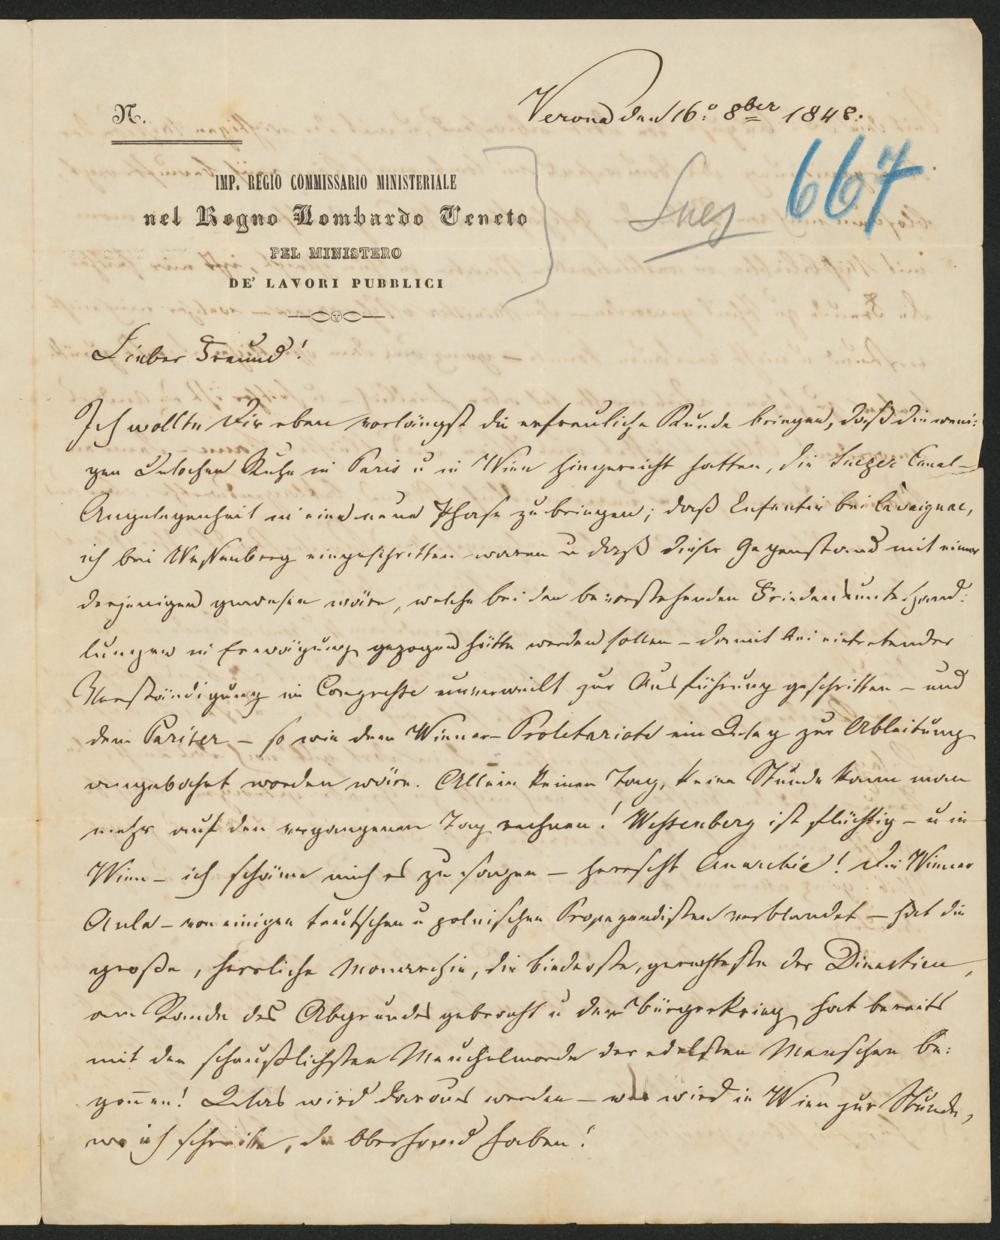 N.
Verona den 16.° 8ber 1848.
667
Suez
IMP. REGIO COMMISSARIO MINISTERIALE
nel Regno Lombardo Veneto
PEL MINISTERO
DE' LAVORI PUBBLICI
Lieber Freund!
Ich wollte Dir eben vorlängst die erfreuliche Kunde bringen, daß die weni-
gen Wochen Ruhe in Paris u in Wien hingereicht hatten, die Suezer Canal-
Angelegenheit in eine neue Phase zu bringen; daß Enfantin bei Cavaignac,
ich bei Wessenberg eingeschritten waren u daß dieser Gegenstand mit einer
derjenigen gewesen wäre, welche bei den bevorstehenden Friedensunterhand-
lungen in Erwägung gezogen hätte werden sollen – damit bei eintretender
Verständigung im Congresse unverweilt zur Ausführung geschritten – und
dem Pariser – so wie dem Wiener Proletariate ein Weg zur Ableitung
angebahnt worden wäre. Allein keinen Tag, keine Stunde kann man
mehr auf den vergangenen Tag rechnen! Wessenberg ist flüchtig – u in
Wien – ich schäme mich es zu sagen – herrscht Anarchie! Die Wiener
Aula – von einigen teutschen u polnischen Propagandisten verblendet – hat die
große, herrliche Monarchie, die biederste, gerechteste der Dinastien,
am Rande des Abgrundes gebracht u der Bürgerkrieg hat bereits
mit den scheußlichsten Meuchelmorde der edelsten Menschen be-
gonnen! Was wird daraus werden – wer wird in Wien zur Stunde,
wo ich schreibe, die Oberhand haben!